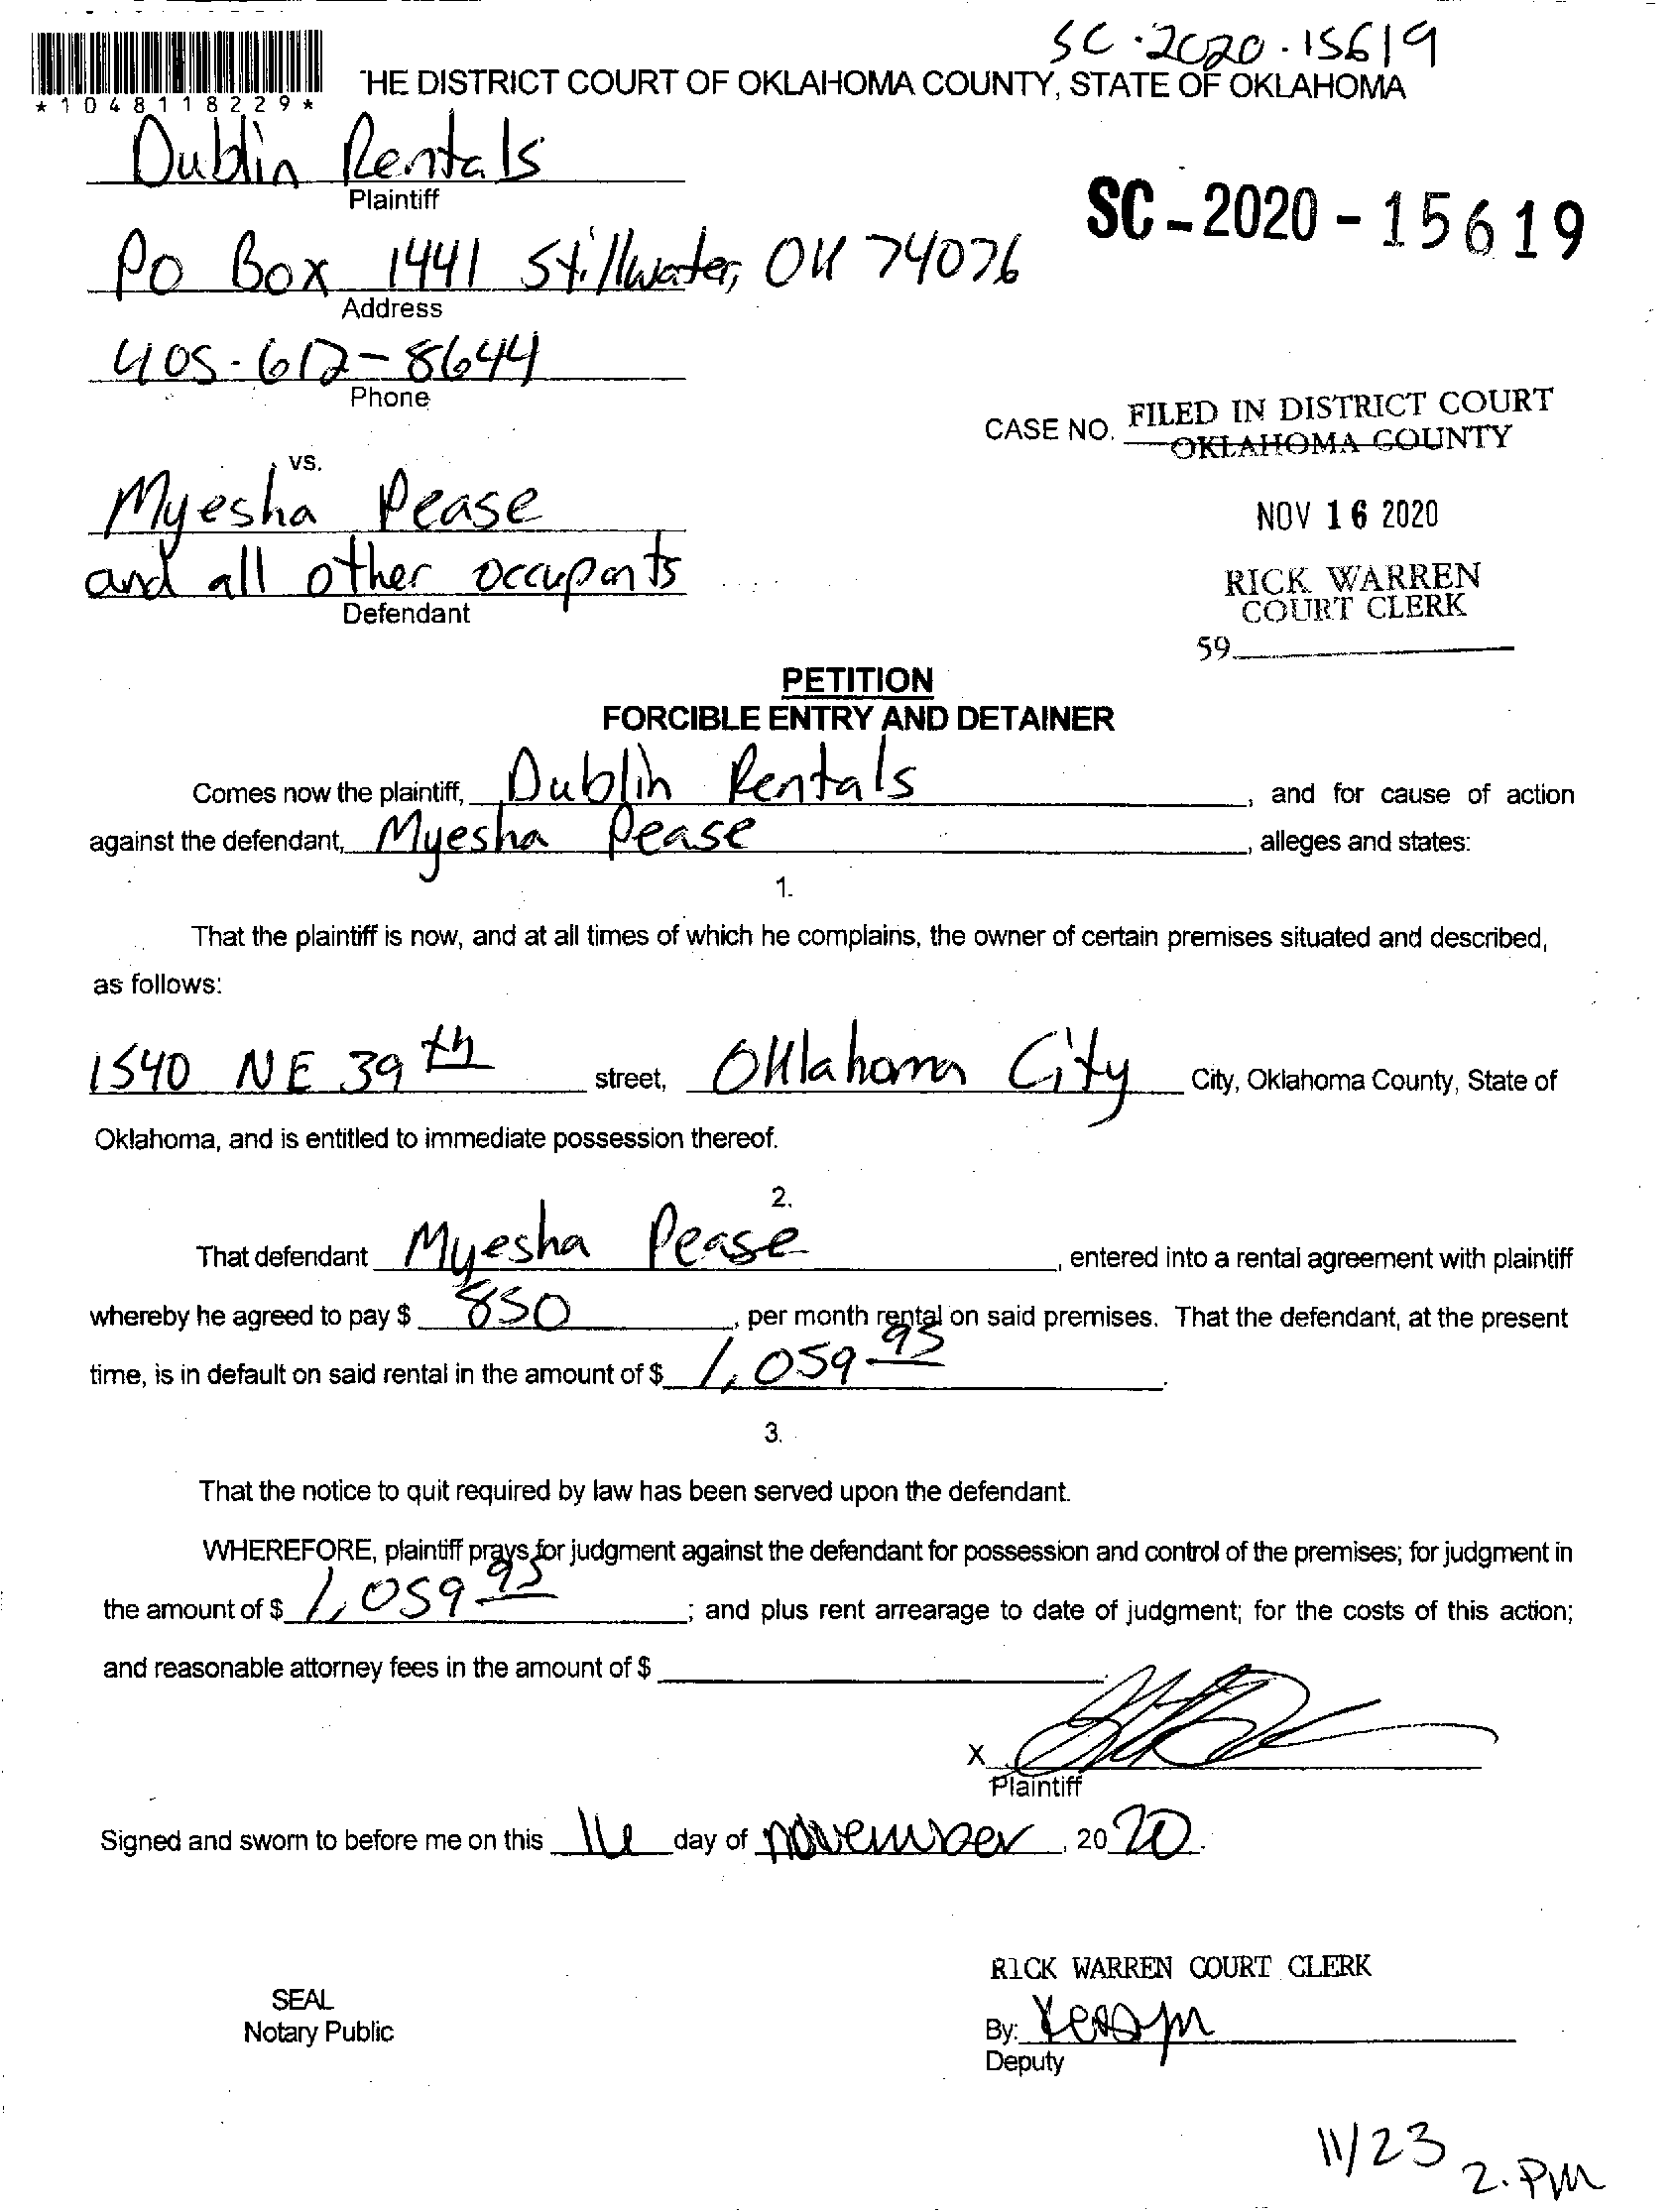 SC-2020-15619
*1048118229*
THE DISTRICT COURT OF OKLAHOMA COUNTY, STATE OF OKLAHOMA
Dublin Rentals
Plaintiff
SC-2020-15619
PO Box 1441 Stillwater, OK 74076
Address
405-612-8644
Phone
CASE NO. FILED IN DISTRICT COURT
OKLAHOMA COUNTY
vs.
Myesha Pease
NOV 16 2020
and all other occupants
Defendant
RICK WARREN
COURT CLERK
59
PETITION
FORCIBLE ENTRY AND DETAINER
Comes now the plaintiff, Dublin Rentals, and for cause of action
against the defendant, Myesha Pease, alleges and states:
1.
That the plaintiff is now, and at all times of which he complains, the owner of certain premises situated and described,
as follows:
1540 NE 39th street, Oklahoma City City, Oklahoma County, State of
Oklahoma, and is entitled to immediate possession thereof.
2.
That defendant Myesha Pease, entered into a rental agreement with plaintiff
whereby he agreed to pay $ 850, per month rental on said premises. That the defendant, at the present
time, is in default on said rental in the amount of $ 1,059.95.
3.
That the notice to quit required by law has been served upon the defendant.
WHEREFORE, plaintiff prays for judgment against the defendant for possession and control of the premises; for judgment in
the amount of $ 1,059.95; and plus rent arrearage to date of judgment; for the costs of this action;
and reasonable attorney fees in the amount of $
X
Plaintiff
Signed and sworn to before me on this 16 day of november, 2020.
RICK WARREN COURT CLERK
SEAL
Notary Public
By:
Deputy
11/23 2.PM